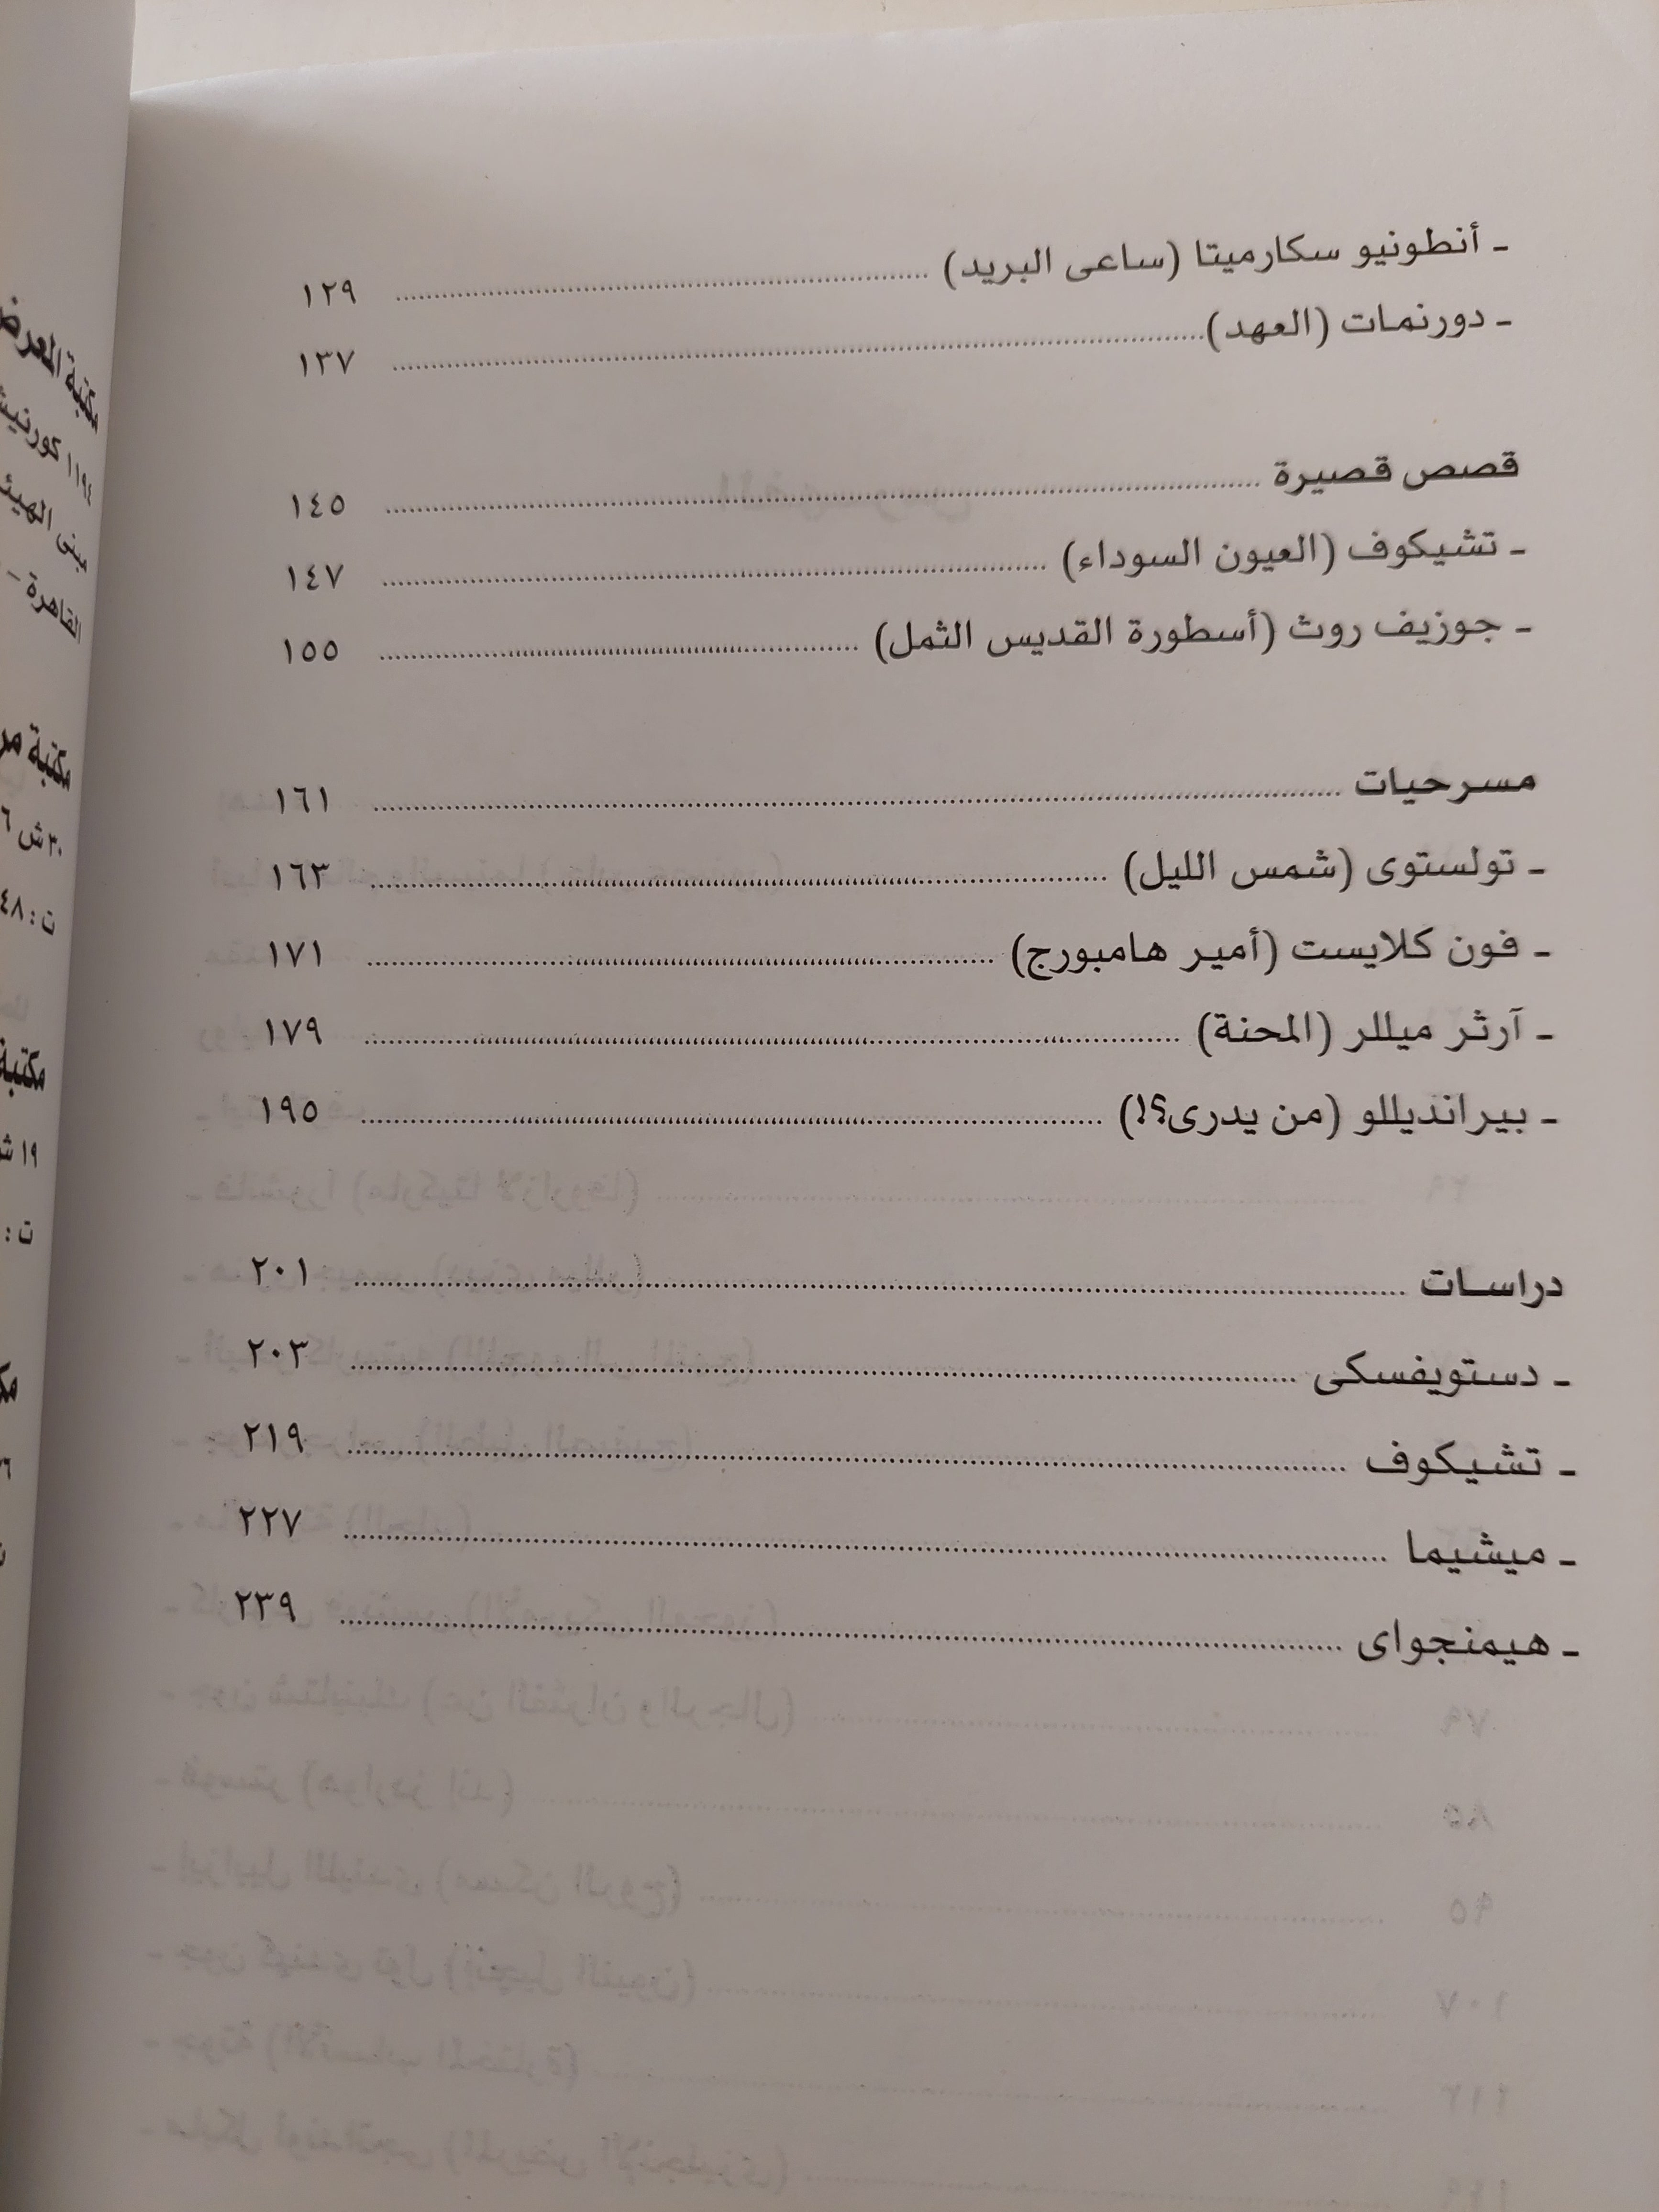 ـ أنطونيو سكارميتا (ساعى البريد) ........ ١٢٩
ـ دورنمات (العهد) ........ ١٣٧
قصص قصيرة ........ ١٤٥
ـ تشيكوف (العيون السوداء) ........ ١٤٧
ـ جوزيف روث (أسطورة القديس الثمل) ........ ١٥٥
مسرحيات ........ ١٦١
ـ تولستوى (شمس الليل) ........ ١٦٣
ـ فون كلايست (أمير هامبورج) ........ ١٧١
ـ آرثر ميللر (المحنة) ........ ١٧٩
ـ بيرانديللو (من يدرى؟!) ........ ١٩٥
دراسات ........ ٢٠١
ـ دستويفسكى ........ ٢٠٣
ـ تشيكوف ........ ٢١٩
ـ ميشيما ........ ٢٢٧
ـ هيمنجواى ........ ٢٣٩
مكتبة المعرض
١١٩٤ كورنيش
مبنى الهيئة
القاهرة –
مكتبة
٣٠ ش
ت : ٤٨
مكتبة
١٩ ش
ت :